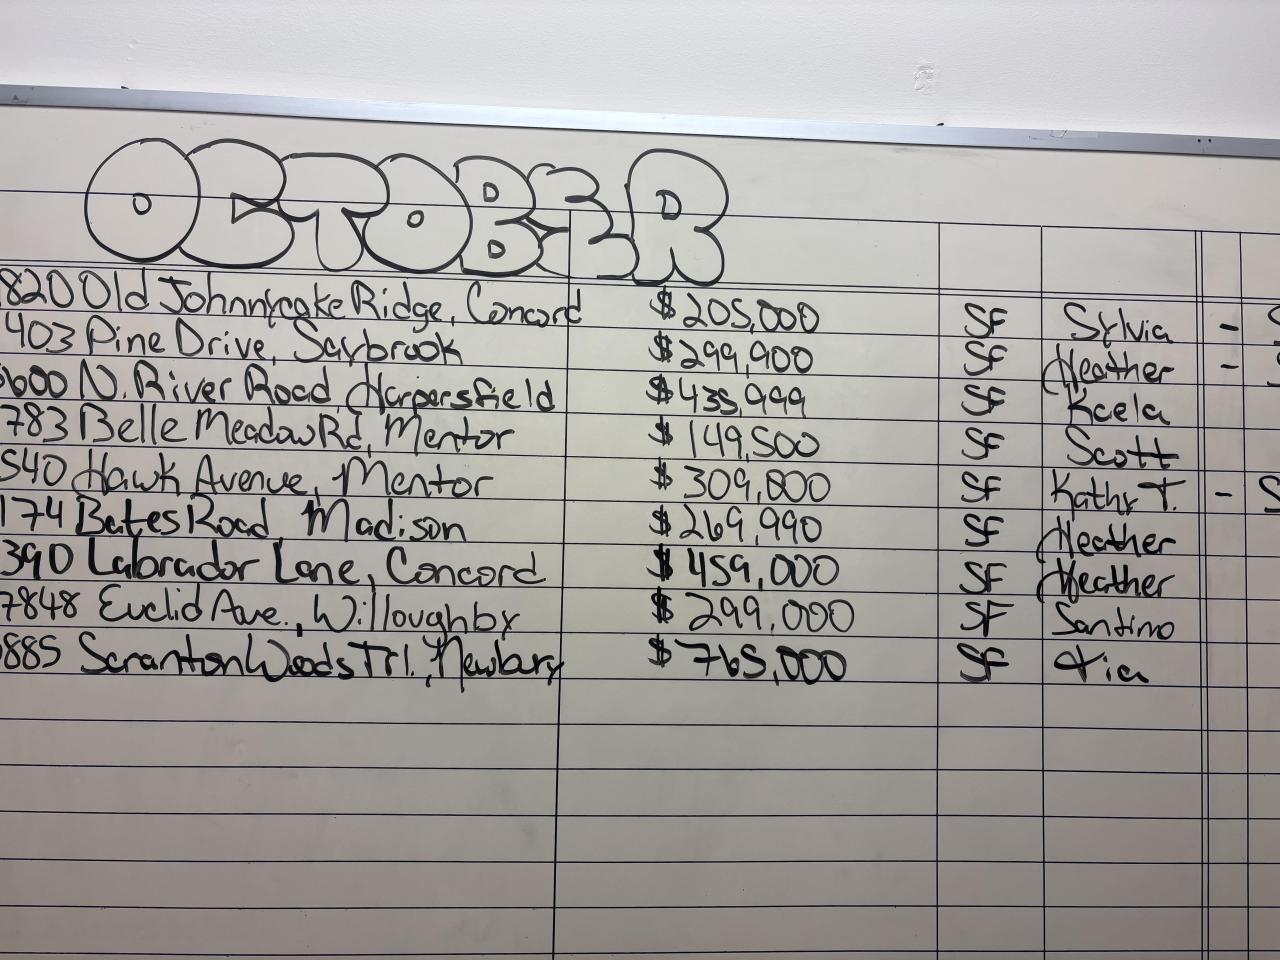 OCTOBER
820 Old Johnnycake Ridge, Concord $205,000 SF Sylvia - S
403 Pine Drive, Saybrook $299,900 SF Heather - S
600 N. River Road, Harpersfield $435,999 SF Kaela
783 Belle Meadow Rd, Mentor $149,500 SF Scott
540 Hawk Avenue, Mentor $309,800 SF Kathy T. - S
174 Bates Road Madison $269,990 SF Heather
390 Labrador Lane, Concord $459,000 SF Heather
7848 Euclid Ave., Willoughby $299,000 SF Santino
885 Scranton Woods Trl., Newbury $765,000 SF Via